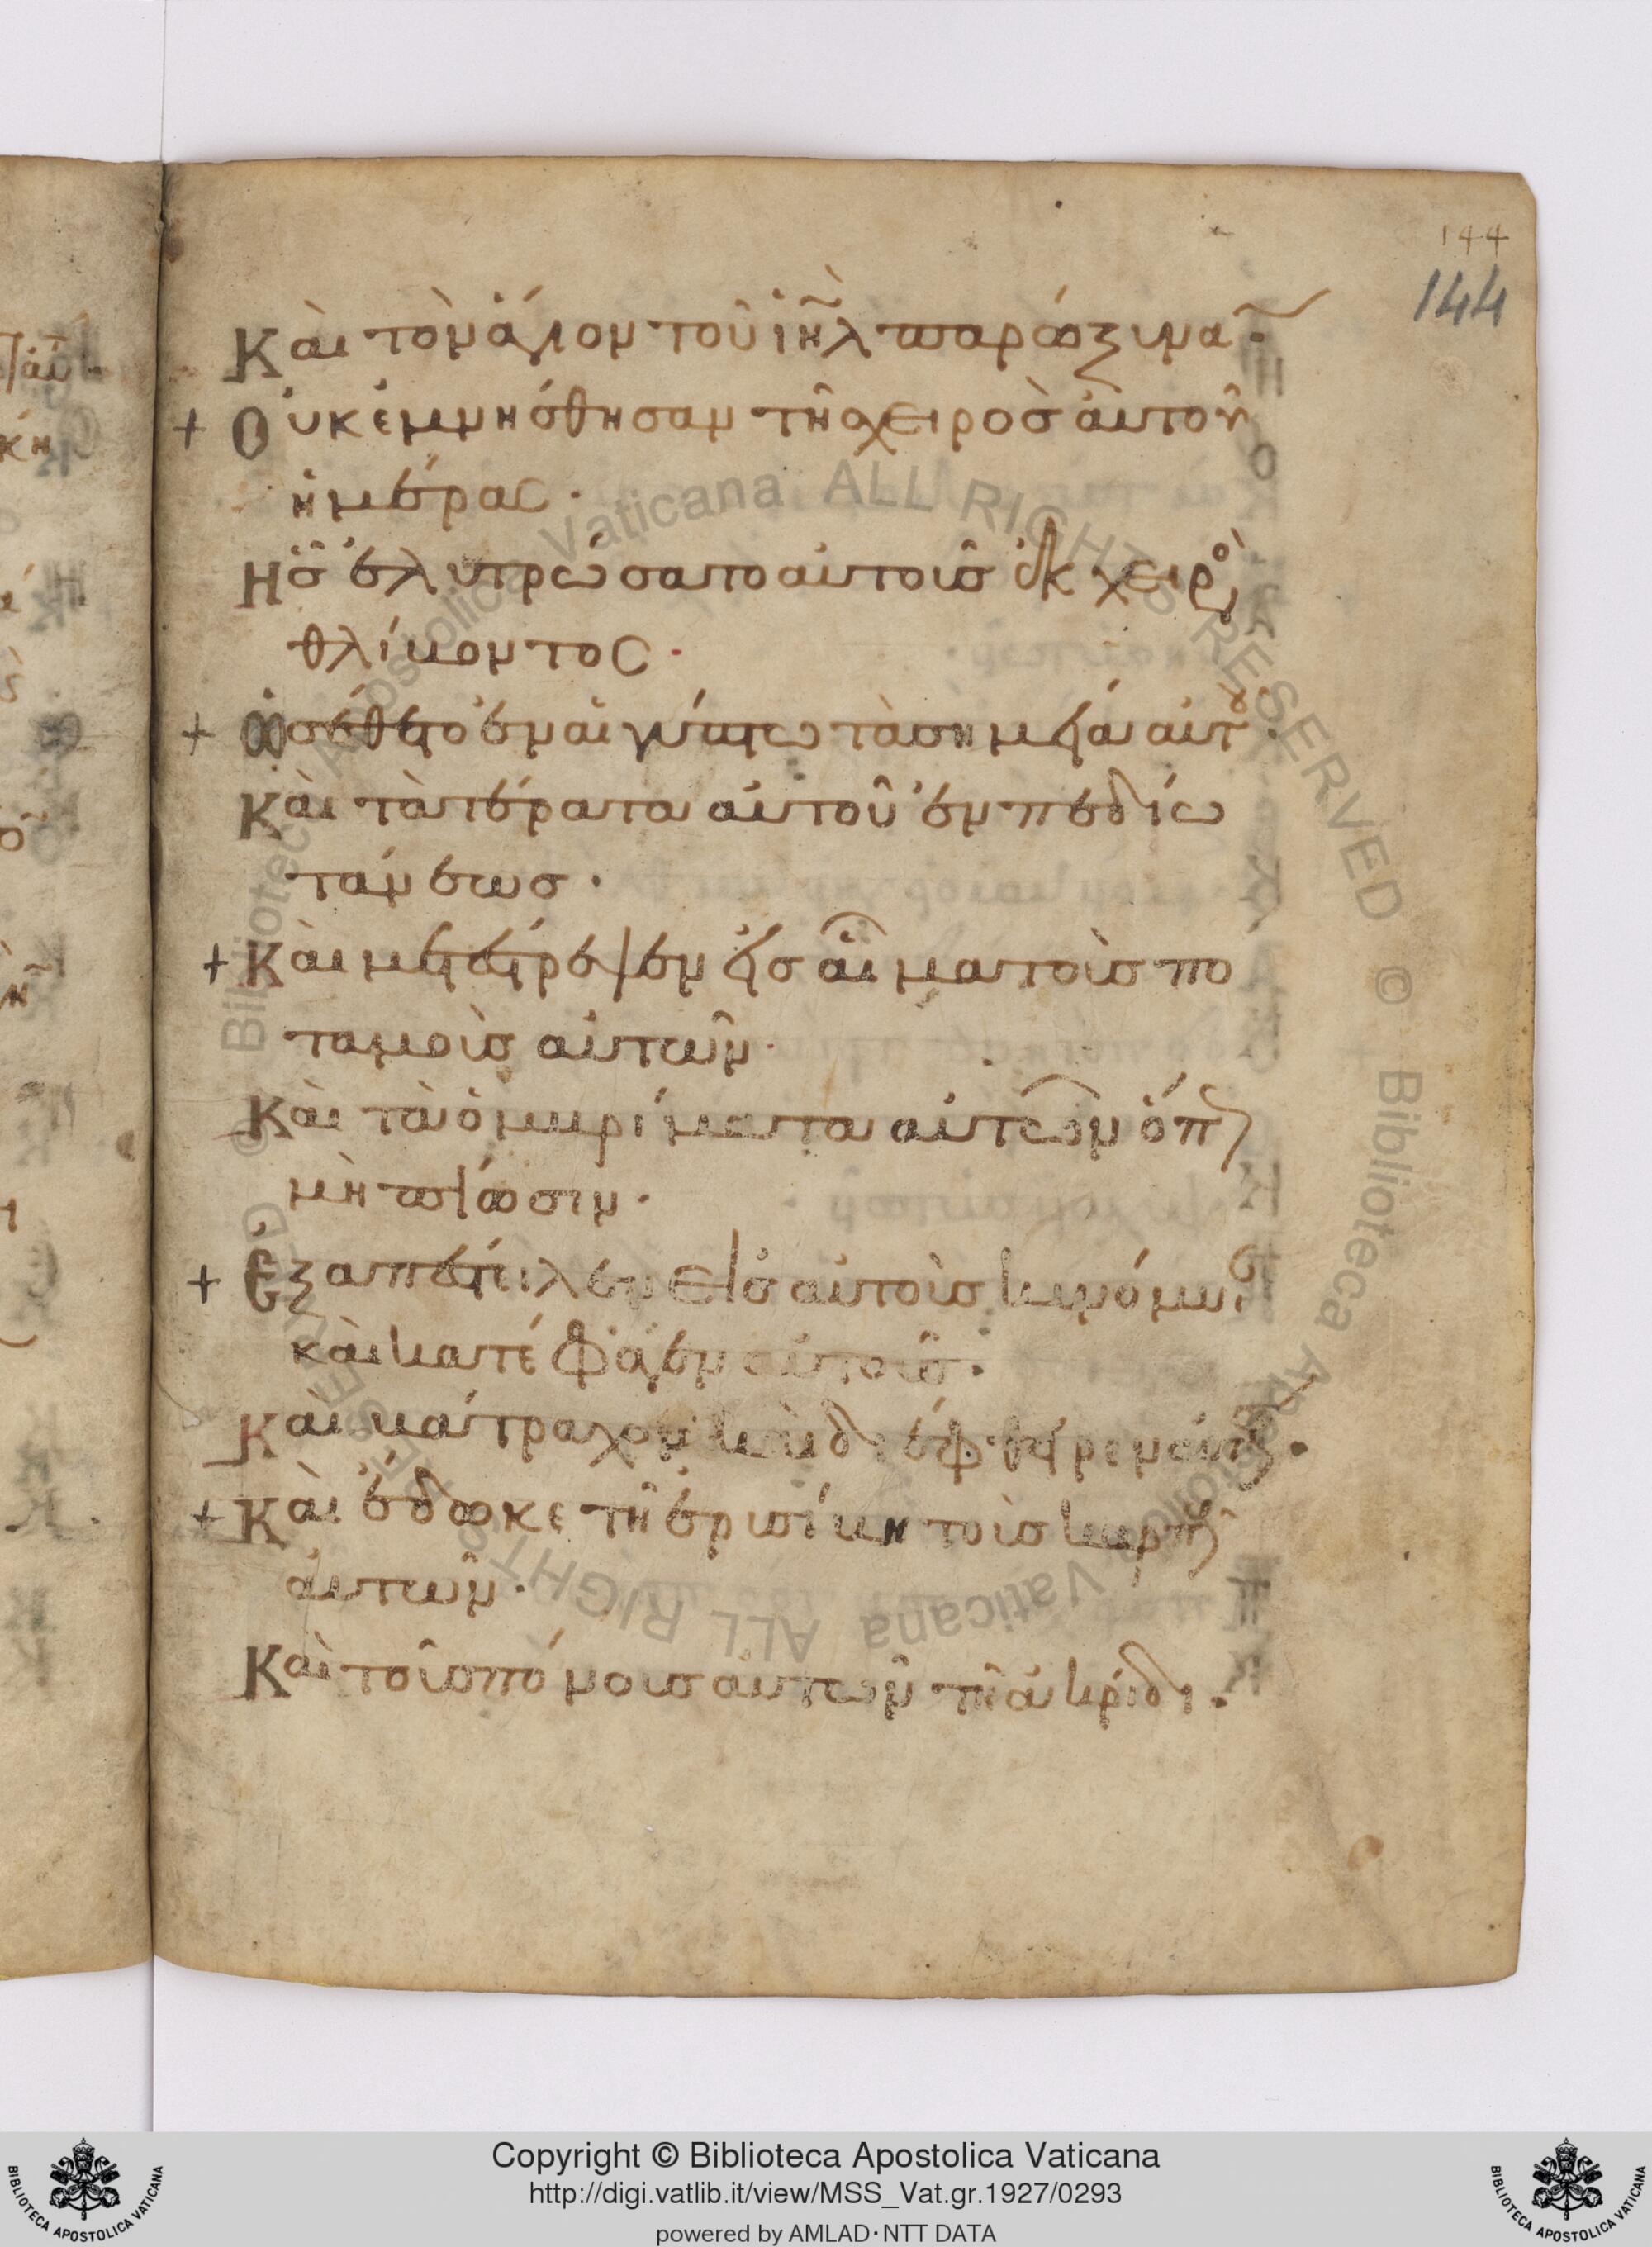 144
144
Καὶ τὸν ἅγιον τοῦ ἰη̃λ παρώξυναν·
+ Οὐκ ἐμνήσθησαν τῆς χειρὸς αὐτοῦ
ἡμέρας·
Ἧς ἐλυτρώσατο αὐτοὺς ἐκ χειρὸς
θλίβοντος·
+ Ὡς ἔθετο ἐν αἰγύπτω τὰ σημεῖα αὐτοῦ·
Καὶ τὰ τέρατα αὐτοῦ ἐν πεδίω
τάνεως·
+ Καὶ μετέστρεψεν εἰς αἷμα τοὺς πο
ταμοὺς αὐτῶν·
Καὶ τὰ ὀμβρίματα αὐτῶν ὅπως
μὴ πίωσιν·
+ Ἐξαπέστειλεν εἰς αὐτοὺς κυνόμυιαν
καὶ κατέφαγεν αὐτοὺς·
Καὶ βάτραχον καὶ διέφθειρεν αὐτούς·
+ Καὶ ἔδωκε τῆ ἐρισίβη τοὺς καρποὺς
αὐτῶν·
Καὶ τοὺς πόνους αὐτῶν τῆ ἀκρίδι·
Copyright © Biblioteca Apostolica Vaticana
http://digi.vatlib.it/view/MSS_Vat.gr.1927/0293
powered by AMLAD·NTT DATA
BIBLIOTECA APOSTOLICA VATICANA
BIBLIOTECA APOSTOLICA VATICANA